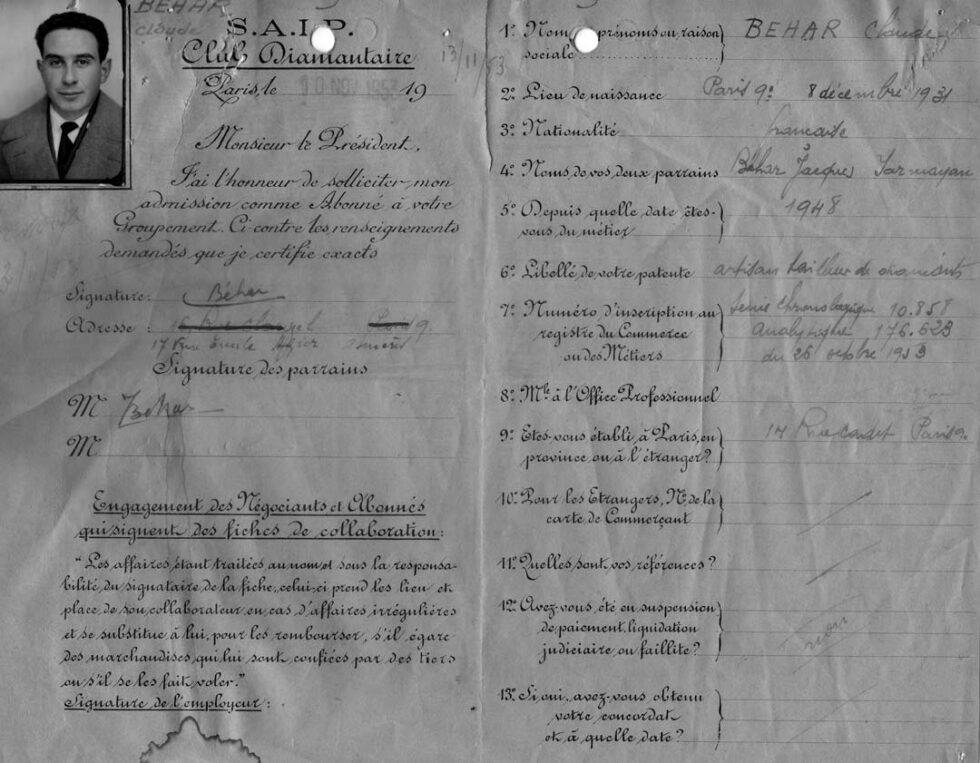 BEHAR
claude
S.A.I.P.
Club Diamantaire
13/11/53
Paris, le 10 NOV 1953 19
Monsieur le Président,
J'ai l'honneur de solliciter, mon
admission comme Abonné à votre
Groupement. Ci-contre les renseignements
demandés que je certifie exacts
Signature: Béhar
Adresse :
17 Rue Emile
Signature des parrains
M Behar
M
Engagement des Négociants et Abonnés
qui signent des fiches de collaboration :
"Les affaires étant traitées au nom et sous la responsa-
bilité du signataire de la fiche, celui-ci prend les lieu et
place de son collaborateur en cas d'affaires irrégulières
et se substitue à lui, pour les rembourser, s'il égare
des marchandises qui lui sont confiées par des tiers
ou s'il se les fait voler."
Signature de l'employeur :
1º Nom, prénoms ou raison sociale BEHAR Claude
2º Lieu de naissance Paris 9º 8 décembre 1931
3º Nationalité française
4º Noms de vos deux parrains Béhar Jacques Sarmayan
5º Depuis quelle date êtes-
vous du métier 1948
6º Libellé de votre patente artisan tailleur de diamants
7º Numéro d'inscription au
registre du Commerce
ou des Métiers
chronologique 10.858
analytique 176.623
du 26 octobre 1953
8º Mle à l'Office Professionnel
9º Etes-vous établi à Paris, en
province ou à l'étranger? 14 Rue Cadet Paris 9.
10º Pour les Etrangers, Nº de la
carte de Commerçant
11º Quelles sont vos références ?
12º Avez-vous été en suspension
de paiement, liquidation
judiciaire ou faillite? non
13º Si oui, avez-vous obtenu
votre concordat
et à quelle date ?